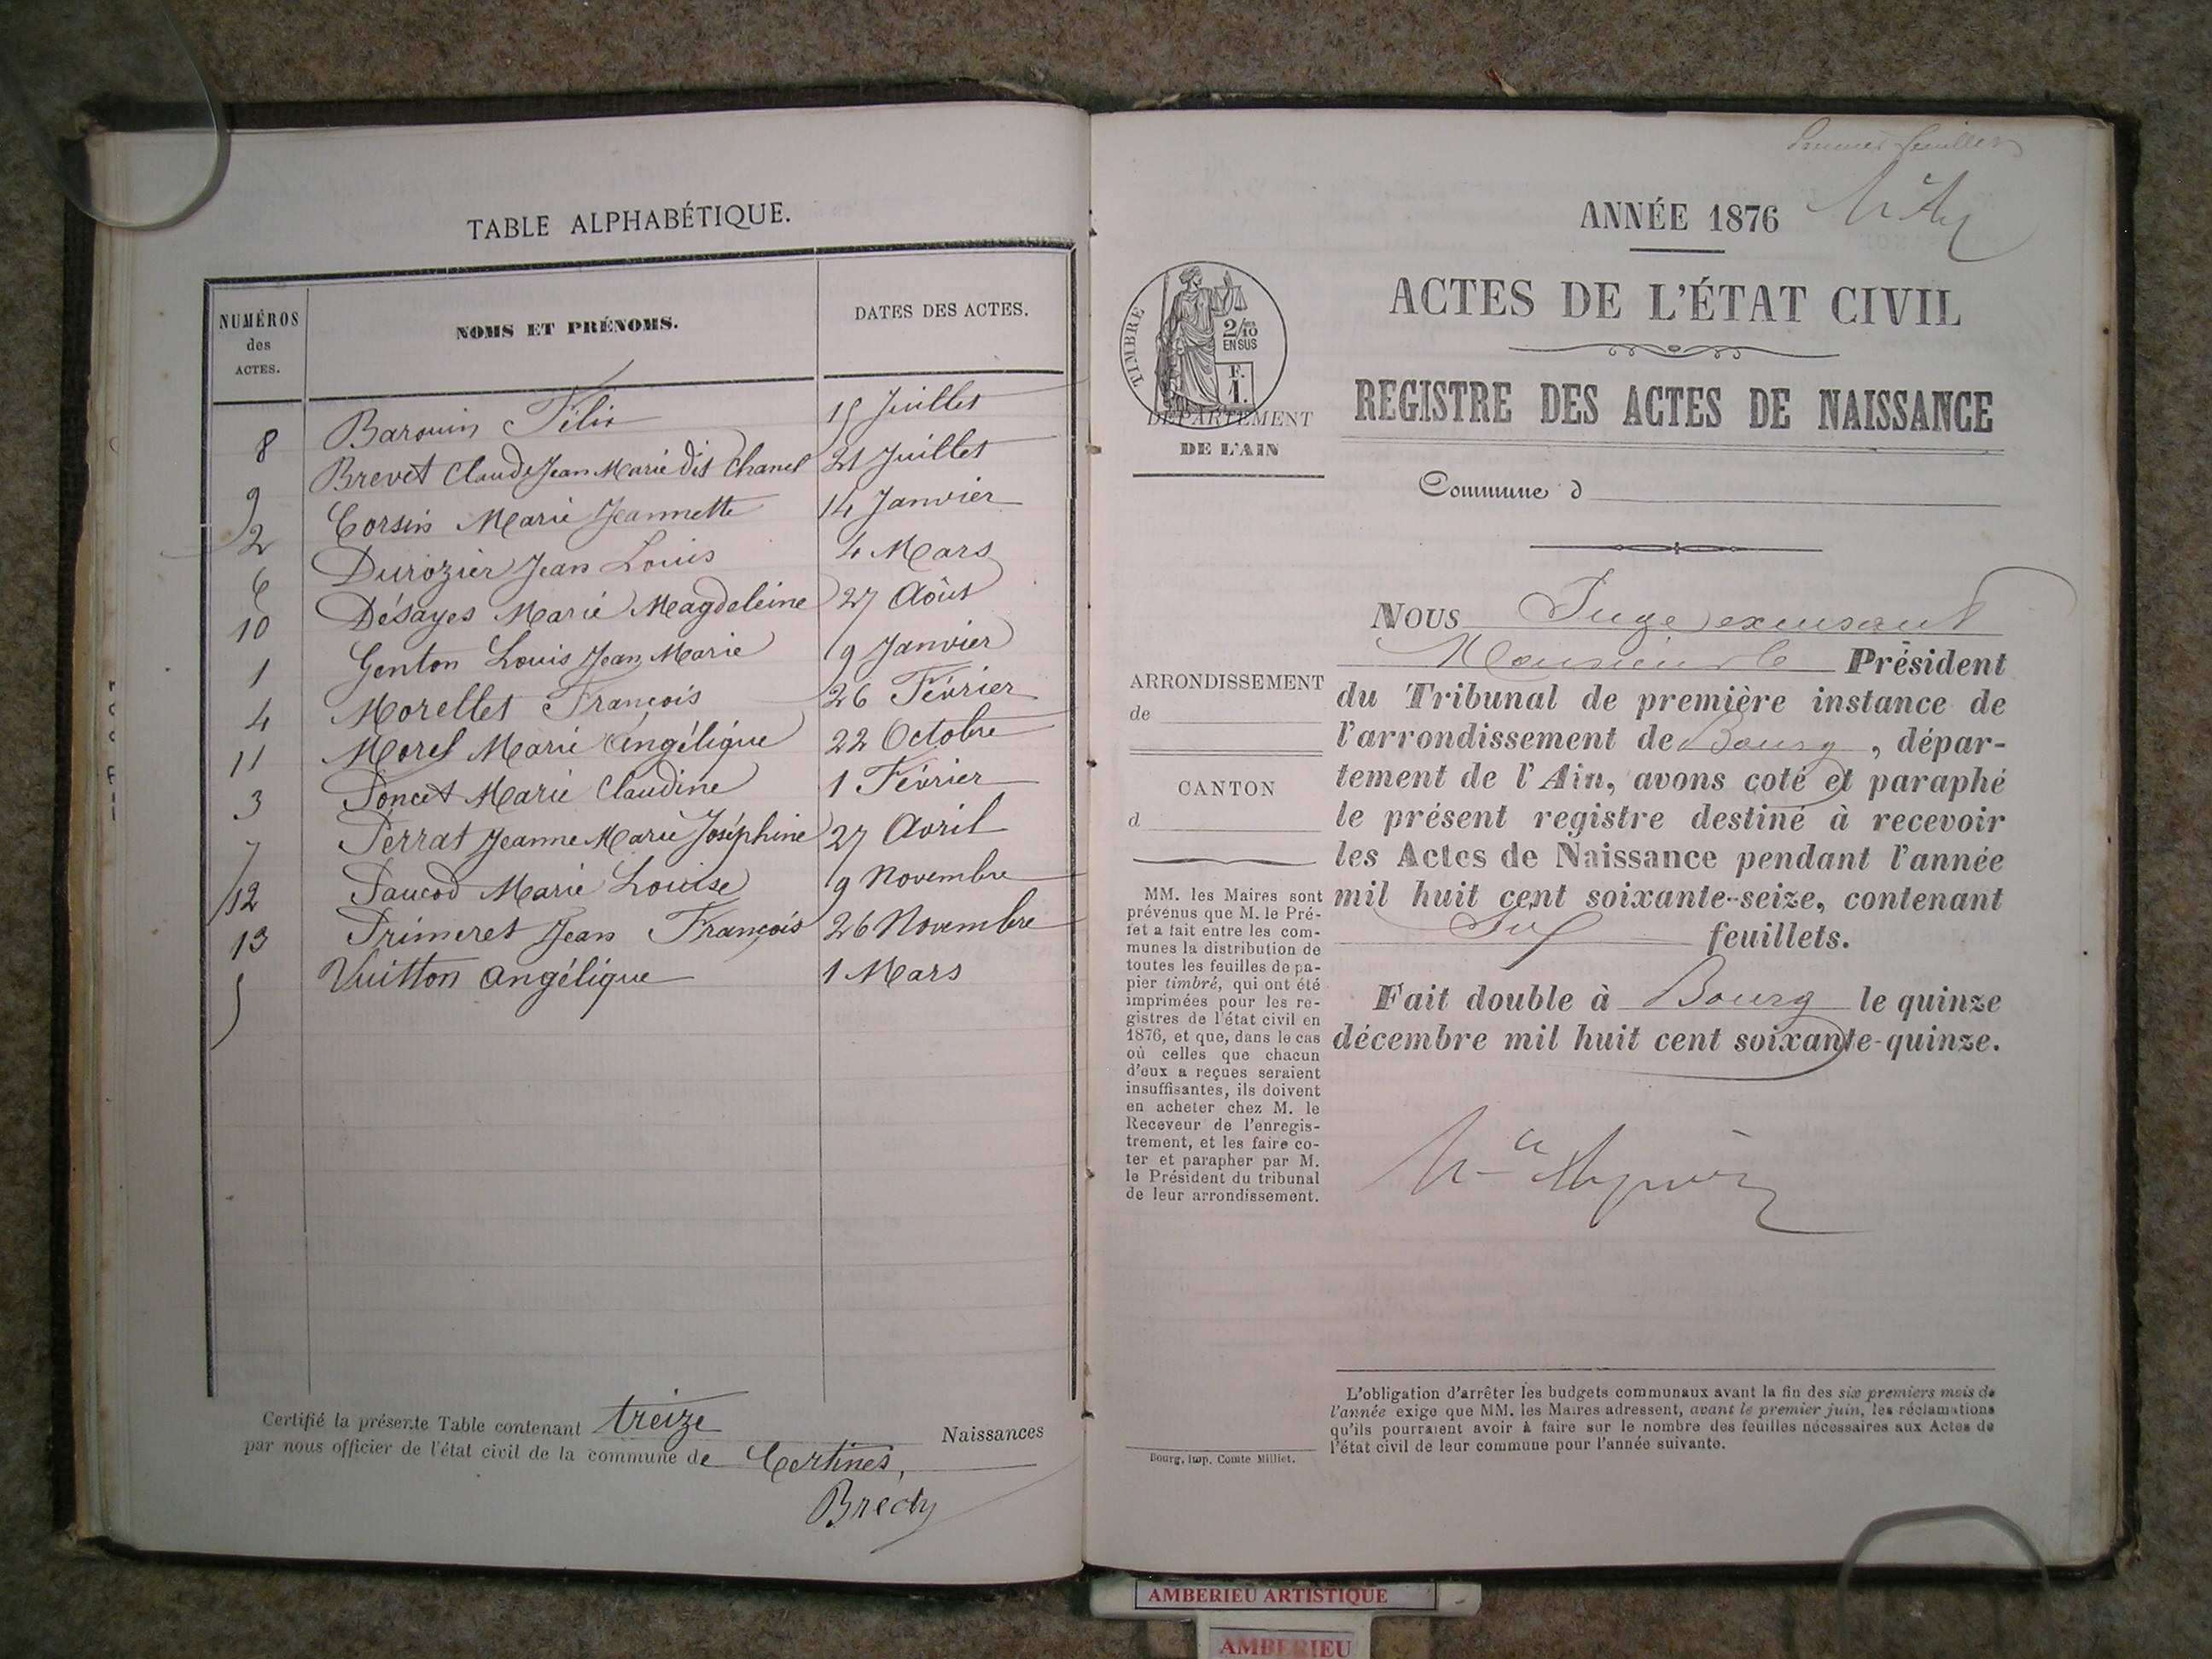 TABLE ALPHABÉTIQUE.
NUMÉROS des ACTES. NOMS ET PRÉNOMS. DATES DES ACTES.
8 Barouin Félix 15 Juillet
9 Brevet Claude Jean Marie dit Chanel 21 Juillet
2 Corsin Marie Jeannette 14 Janvier
6 Durozier Jean Louis 4 Mars
10 Désayes Marie Magdeleine 27 Août
1 Genton Louis Jean Marie 9 Janvier
4 Morellet François 26 Février
11 Morel Marie Angélique 22 Octobre
3 Poncet Marie Claudine 1 Février
7 Perrat Jeanne Marie Joséphine 27 Avril
12 Paucod Marie Louise 9 Novembre
13 Primeret Jean François 26 Novembre
5 Vuitton Angélique 1 Mars
Certifié la présente Table contenant treize Naissances
par nous officier de l'état civil de la commune de Certines,
Bredy
ANNÉE 1876
ACTES DE L'ÉTAT CIVIL
REGISTRE DES ACTES DE NAISSANCE
Commune d
TIMBRE
2/10
EN SUS
F.
1.
DÉPARTEMENT
DE L'AIN
ARRONDISSEMENT
de
CANTON
d
MM. les Maires sont
prévenus que M. le Pré-
fet a fait entre les com-
munes la distribution de
toutes les feuilles de pa-
pier timbré, qui ont été
imprimées pour les re-
gistres de l'état civil en
1876, et que, dans le cas
où celles que chacun
d'eux a reçues seraient
insuffisantes, ils doivent
en acheter chez M. le
Receveur de l'enregis-
trement, et les faire co-
ter et parapher par M.
le Président du tribunal
de leur arrondissement.
Bourg, Imp. Comte Milliet.
NOUS Juge excusant
Monsieur le Président
du Tribunal de première instance de
l'arrondissement de Bourg, dépar-
tement de l'Ain, avons coté et paraphé
le présent registre destiné à recevoir
les Actes de Naissance pendant l'année
mil huit cent soixante-seize, contenant
feuillets.
Fait double à Bourg le quinze
décembre mil huit cent soixante-quinze.
L'obligation d'arrêter les budgets communaux avant la fin des six premiers mois de
l'année exige que MM. les Maires adressent, avant le premier juin, les réclamations
qu'ils pourraient avoir à faire sur le nombre des feuilles nécessaires aux Actes de
l'état civil de leur commune pour l'année suivante.
AMBERIEU ARTISTIQUE
AMBERIEU